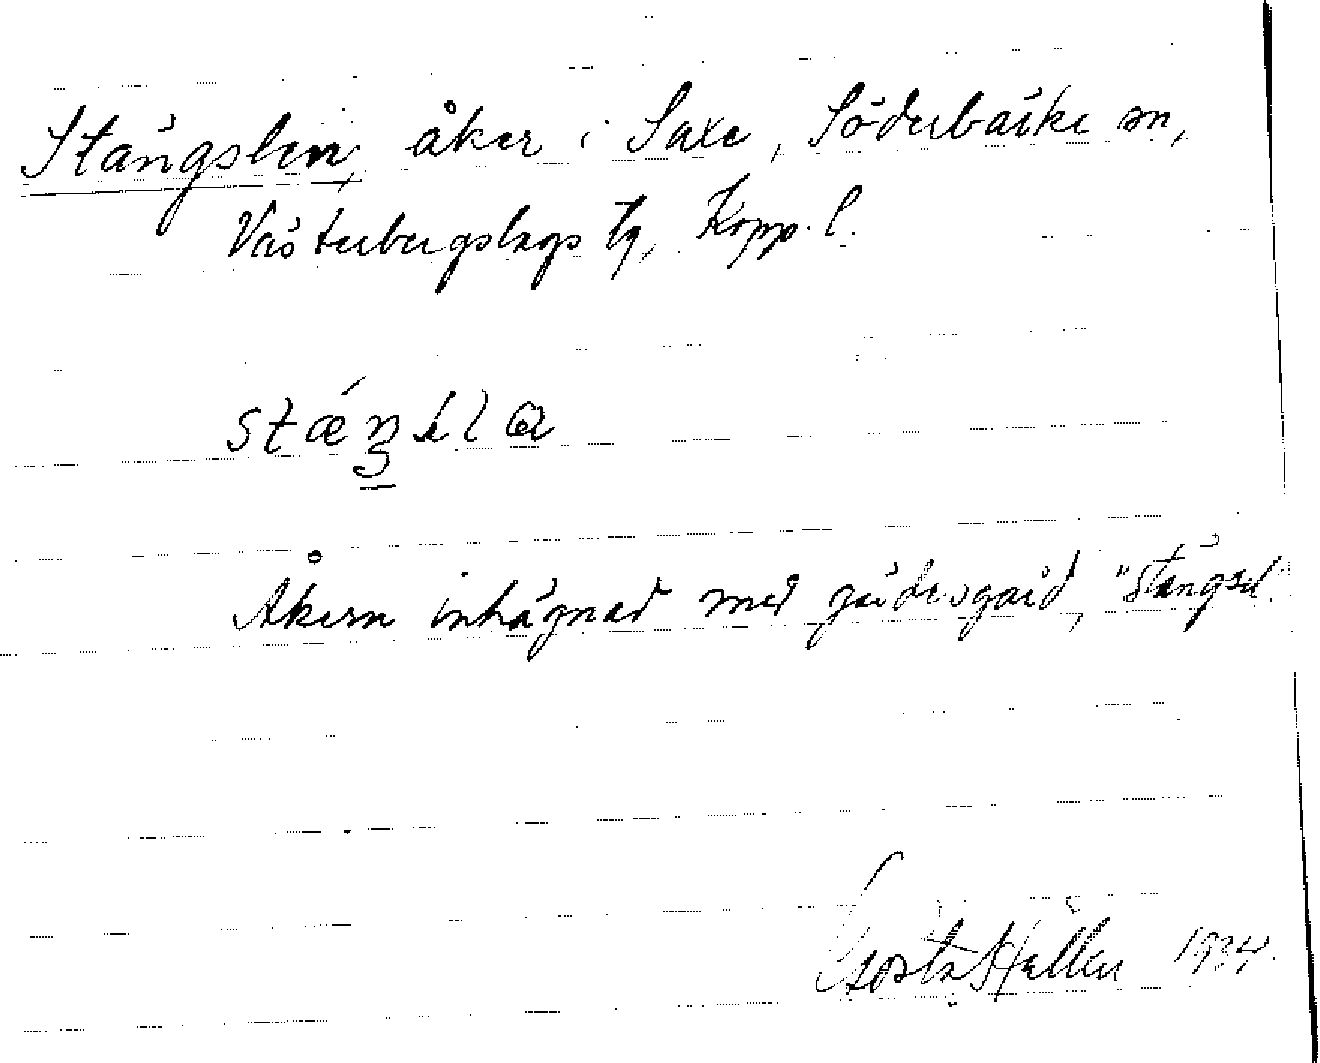 Stängslen, åker i Saxe, Söderbärke sn,
Västerbergslags tg, Kopp. l.
Åkern inhägnad med gärdesgård, "stängsel".
Gösta Hallen 1934.